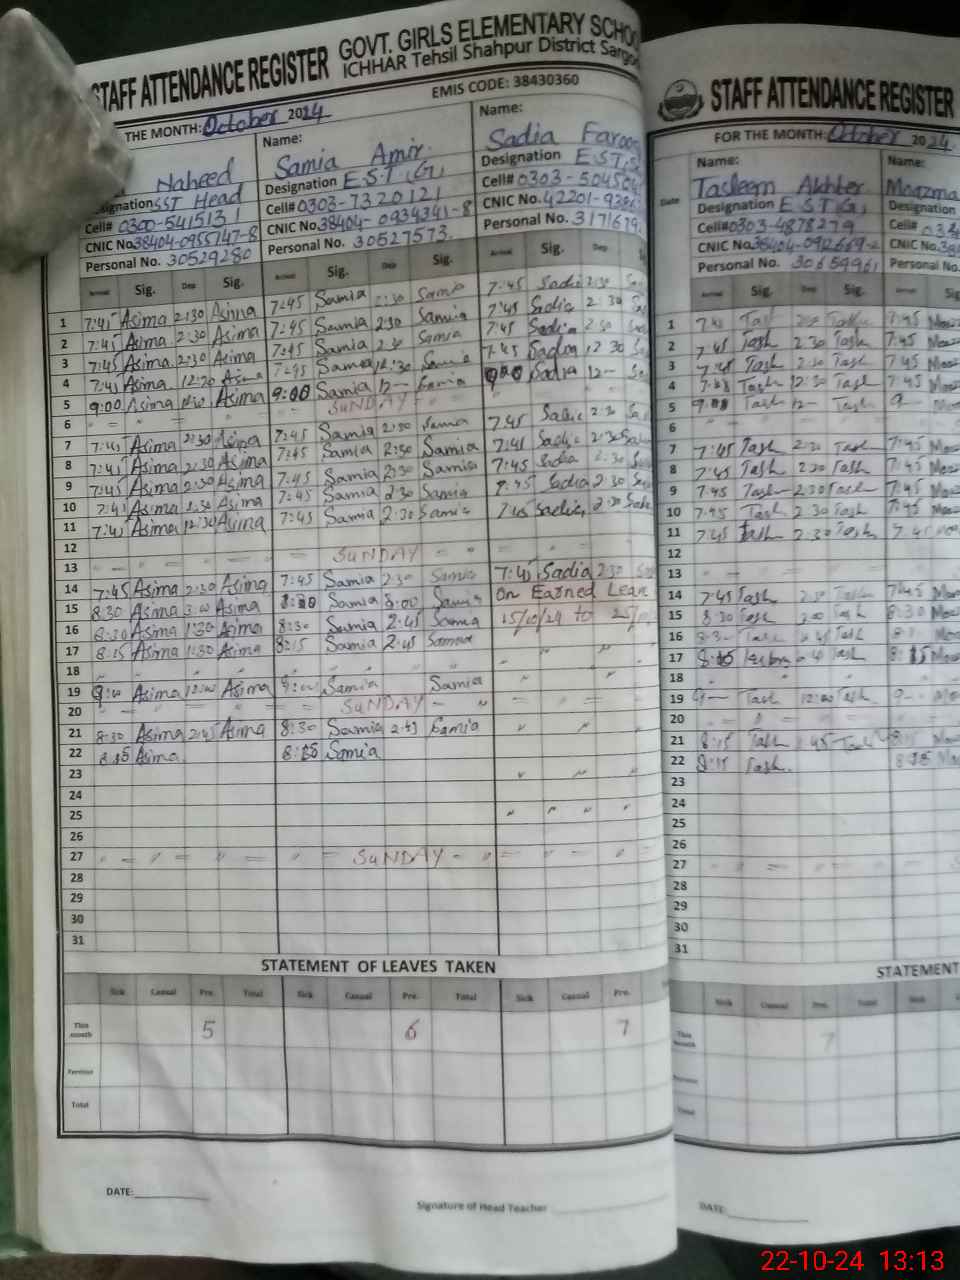 STAFF ATTENDANCE REGISTER GOVT. GIRLS ELEMENTARY SCHOO
ICHHAR Tehsil Shahpur District Sargo
EMIS CODE: 38430360
THE MONTH: October 2024
Naheed
Designation SST Head
Cell# 0300-5415131
CNIC No. 38404-0955747-8
Personal No. 30529280
Name:
Samia Amir.
Designation E.S.T (G)
Cell# 0303-7320121
CNIC No. 38404-0934341-8
Personal No. 30527573.
Name:
Sadia Faroo
Designation E.S.T
Cell# 0303-50450
CNIC No. 42201-938
Personal No. 317167
Arrival Sig. Dep Sig. Arrival Sig. Dep Sig. Arrival Sig. Dep
1 7:45 Asima 2:30 Asima 7:45 Samia 2:30 Samia 7:45 Sadia 2:30
2 7:45 Asima 2:30 Asima 7:45 Samia 2:30 Samia 7:45 Sadia 2:30
3 7:45 Asima 2:30 Asima 7:45 Samia 2:30 Samia 7:45 Sadia 2:30
4 7:45 Asima 12:30 Asima 7:45 Samia 12:30 Samia 7:45 Sadia 12:30
5 9:00 Asima Asima 9:00 Samia 12- Samia 9:00 Sadia 12-
6 SUNDAY
7 7:45 Asima 2:30 Asima 7:45 Samia 2:30 Samia 7:45 Sadia 2:30
8 7:45 Asima 2:30 Asima 7:45 Samia 2:30 Samia 7:45 Sadia 2:30
9 7:45 Asima 2:30 Asima 7:45 Samia 2:30 Samia 7:45 Sadia 2:30
10 7:45 Asima Asima 7:45 Samia 2:30 Samia 7:45 Sadia 2:30
11 7:45 Asima 12:30 Asima 7:45 Samia 2:30 Samia 7:45 Sadia 2:30
12
13 SUNDAY
14 7:45 Asima 2:30 Asima 7:45 Samia 2:30 Samia 7:45 Sadia 2:30
15 8:30 Asima 3:00 Asima Samia 3:00 Samia On Earned Lean
16 8:30 Asima 1:30 Asima 8:30 Samia 2:45 Samia 15/10/24 to 25/
17 8:15 Asima 1:30 Asima 8:15 Samia 2:45 Samia
18
19 9:00 Asima 12:00 Asima 9:00 Samia Samia
20 SUNDAY
21 8:30 Asima 2:45 Asima 8:30 Samia 2:45 Samia
22 8:15 Asima 8:15 Samia
23
24
25
26
27 SUNDAY
28
29
30
31
STATEMENT OF LEAVES TAKEN
Sick Casual Pre. Total Sick Casual Pre. Total Sick Casual Pre.
This month 5 6 7
Previous
Total
DATE:
Signature of Head Teacher
STAFF ATTENDANCE REGISTER
FOR THE MONTH: October 2024
Date
Name:
Tasleem Akhter
Designation E S T G
Cell# 0303-4878279
CNIC No. 38404-092669-2
Personal No. 30659961
Name:
Moazma
Designation
Cell# 03
CNIC No.
Personal
Arrival Sig. Dep Sig. Arrival
1 7:45 Tash 2:30 7:45
2 7:45 Tash 2:30 Tash 7:45
3 7:45 Tash 2:30 Tash 7:45
4 Tash 12:30 Tash 7:45
5 Tash 12- Tash 9
6
7 7:45 Tash 2:30 Tash 7:45
8 7:45 Tash 2:30 Tash 7:45
9 7:45 Tash 2:30 Tash 7:45
10 7:45 Tash 2:30 Tash 7:45
11 7:45 Tash 2:30 Tash 7:45
12
13
14 7:45 Tash Tash 7:45
15 8:30 Tash Tash 8:30
16 8:30 Tash Tash
17 8:15 Tash 8:15
18
19 Tash 12:00 Tash 9
20
21 8:15 Tash Tash
22 8:15 Tash.
23
24
25
26
27
28
29
30
31
STATEMENT
Sick Casual Pre. Total Sick
This month 7
Previous
Total
DATE:
22-10-24 13:13